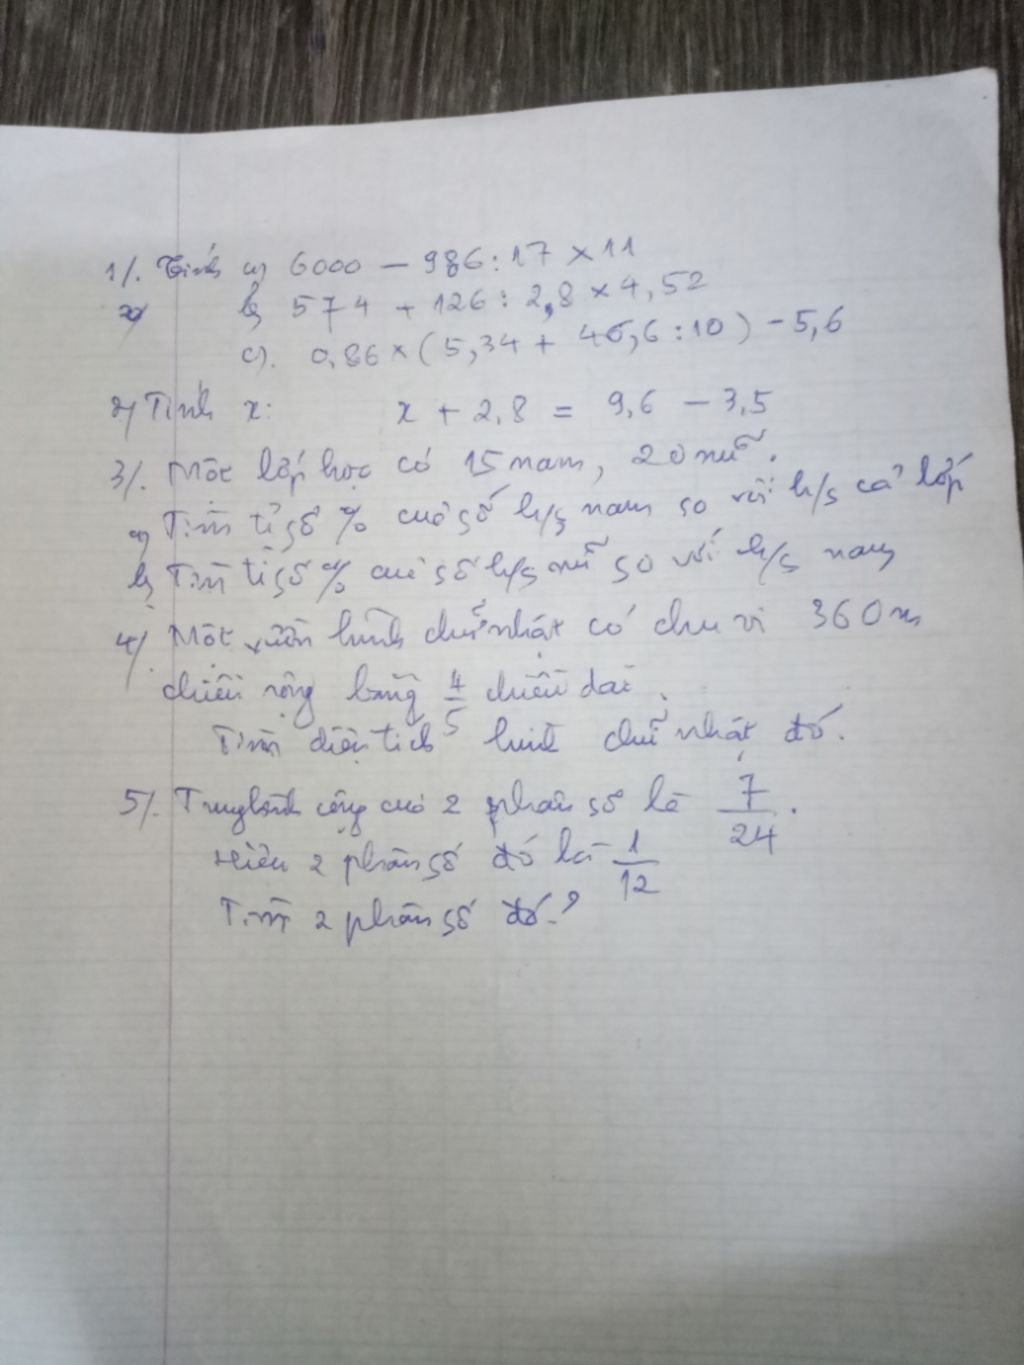 1/. Tính a) 6000 - 986 : 17 × 11
b) 574 + 126 : 2,8 × 4,52
c). 0,86 × (5,34 + 46,6 : 10) - 5,6
2/ Tính x: x + 2,8 = 9,6 - 3,5
3/. Một lớp học có 15 nam, 20 nữ.
a) Tìm tỉ số % của số h/s nam so với h/s cả lớp
b) Tìm tỉ số % của số h/s nữ so với h/s nam
4/. Một vườn hình chữ nhật có chu vi 360 m
chiều rộng bằng 4/5 chiều dài.
Tính diện tích hình chữ nhật đó.
5/. Trung bình cộng của 2 phân số là 7/24.
Hiệu 2 phân số đó là 1/12
Tìm 2 phân số đó?